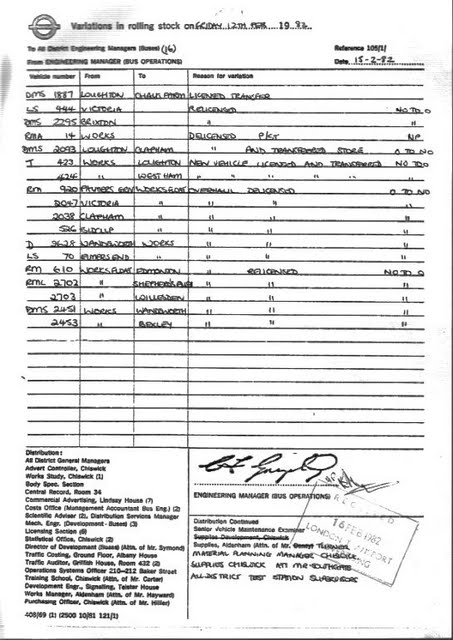 Variations in rolling stock on FRIDAY 12TH FEB. 1982
To All District Engineering Managers (Buses) (16) Reference 105/1/
From ENGINEERING MANAGER (BUS OPERATIONS) Date 15-2-82
Vehicle number From To Reason for variation
DMS 1887 LOUGHTON CHALK FARM LICENSED TRANSFER
LS 444 VICTORIA RELICENSED NO TO O
DMS 2295 BRIXTON " " "
RMA 14 WORKS DELICENSED PKT NP
DMS 2093 LOUGHTON CLAPHAM " AND TRANSFERRED STORE O TO NO
T 423 WORKS LOUGHTON NEW VEHICLE LICENSED AND TRANSFERRED NO TO O
424 " WEST HAM " " " " "
RM 920 PALMERS GRN WORKS FLOAT OVERHAUL DELICENSED O TO NO
2047 VICTORIA " " " "
2038 CLAPHAM " " " "
526 SIDCUP " " " "
D 2628 WANDSWORTH WORKS " " "
LS 70 ELMERS END " " " "
RM 610 WORKS FLOAT EDMONTON " RELICENSED NO TO O
RML 2702 " SHEPHERD'S BUSH " " "
2703 " WILLESDEN " " "
DMS 2451 WORKS WANDSWORTH " " "
2453 " BEXLEY " " "
Distribution:
All District General Managers
Advert Controller, Chiswick
Works Study, Chiswick (1)
Body Spec. Section
Central Record, Room 34
Commercial Advertising, Lindsay House (7)
Costs Office (Management Accountant Bus Eng.) (2)
Scientific Adviser (2), Distribution Services Manager
Mech. Engr. (Development - Buses) (3)
Licensing Section (6)
Statistical Office, Chiswick (2)
Director of Development (Buses) (Attn. of Mr. Symond)
Traffic Costing, Ground Floor, Albany House
Traffic Auditor, Griffith House, Room 432 (2)
Operations Systems Officer 210-212 Baker Street
Training School, Chiswick (Attn. of Mr. Carter)
Development Engr., Signalling, Telstar House
Works Manager, Aldenham (Attn. of Mr. Hayward)
Purchasing Officer, Chiswick (Attn. of Mr. Hiller)
405/69 (1) (2500 10/81 121/1)
ENGINEERING MANAGER (BUS OPERATIONS)
Distribution Continued
Senior Vehicle Maintenance Examiner
Supplies Development, Chiswick
Supplies, Aldenham (Attn. of Mr.
MATERIAL PLANNING MANAGER CHISWICK.
SUPPLIES CHISWICK ATT MR SOUTHGATE
ALL DISTRICT TEST STATION SUPERVISORS
RECEIVED
16 FEB 1982
LONDON TRANSPORT